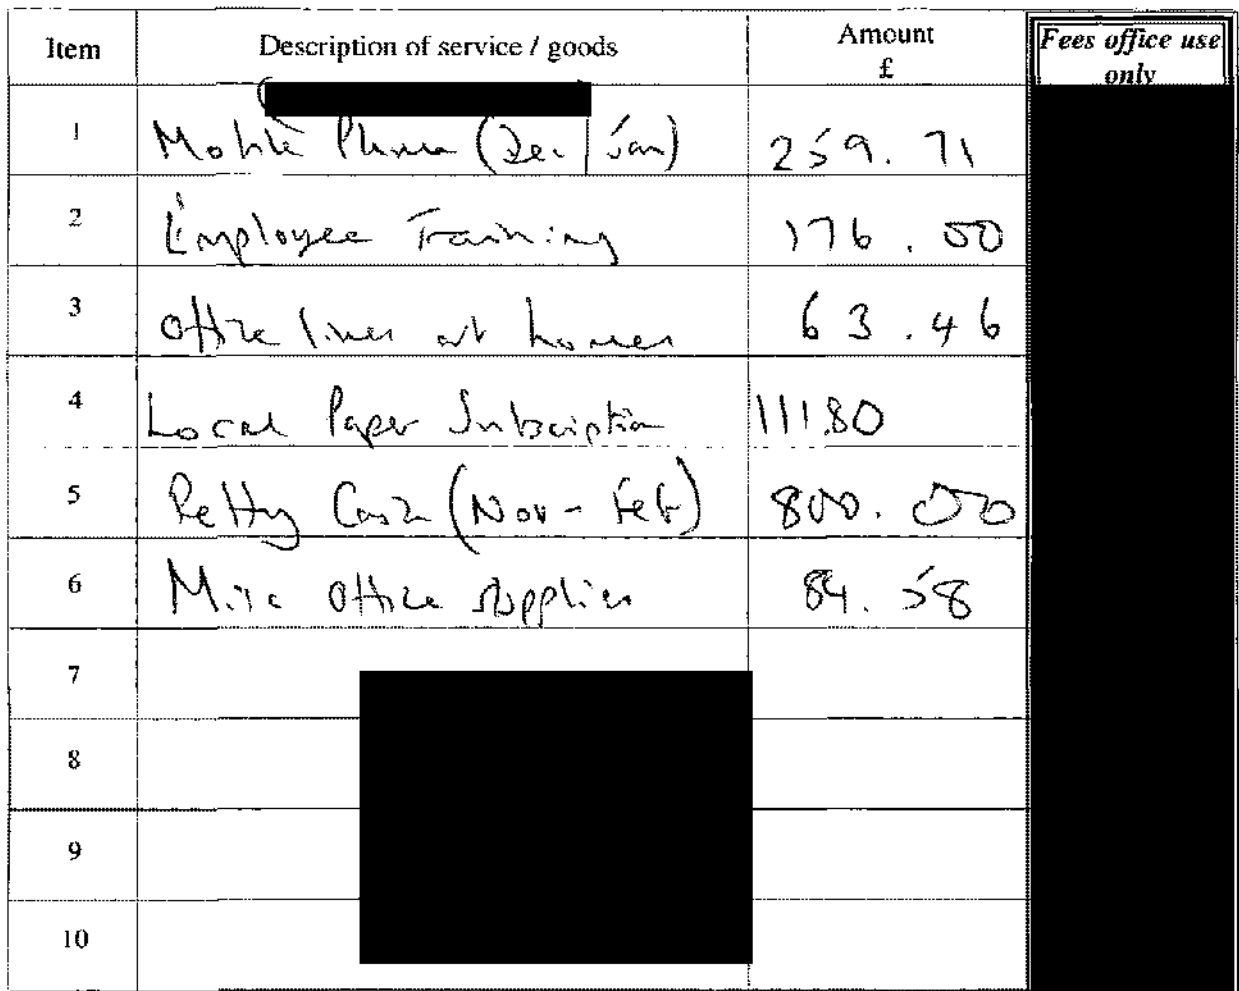 Item Description of service / goods Amount £ Fees office use only
1 Mobile Phone (Dec/Jan) 259.71
2 Employee Training 176.00
3 Office lines at homes 63.46
4 Local Paper Subscription 111.80
5 Petty Cash (Nov - Feb) 800.00
6 Misc Office supplies 84.58
7
8
9
10